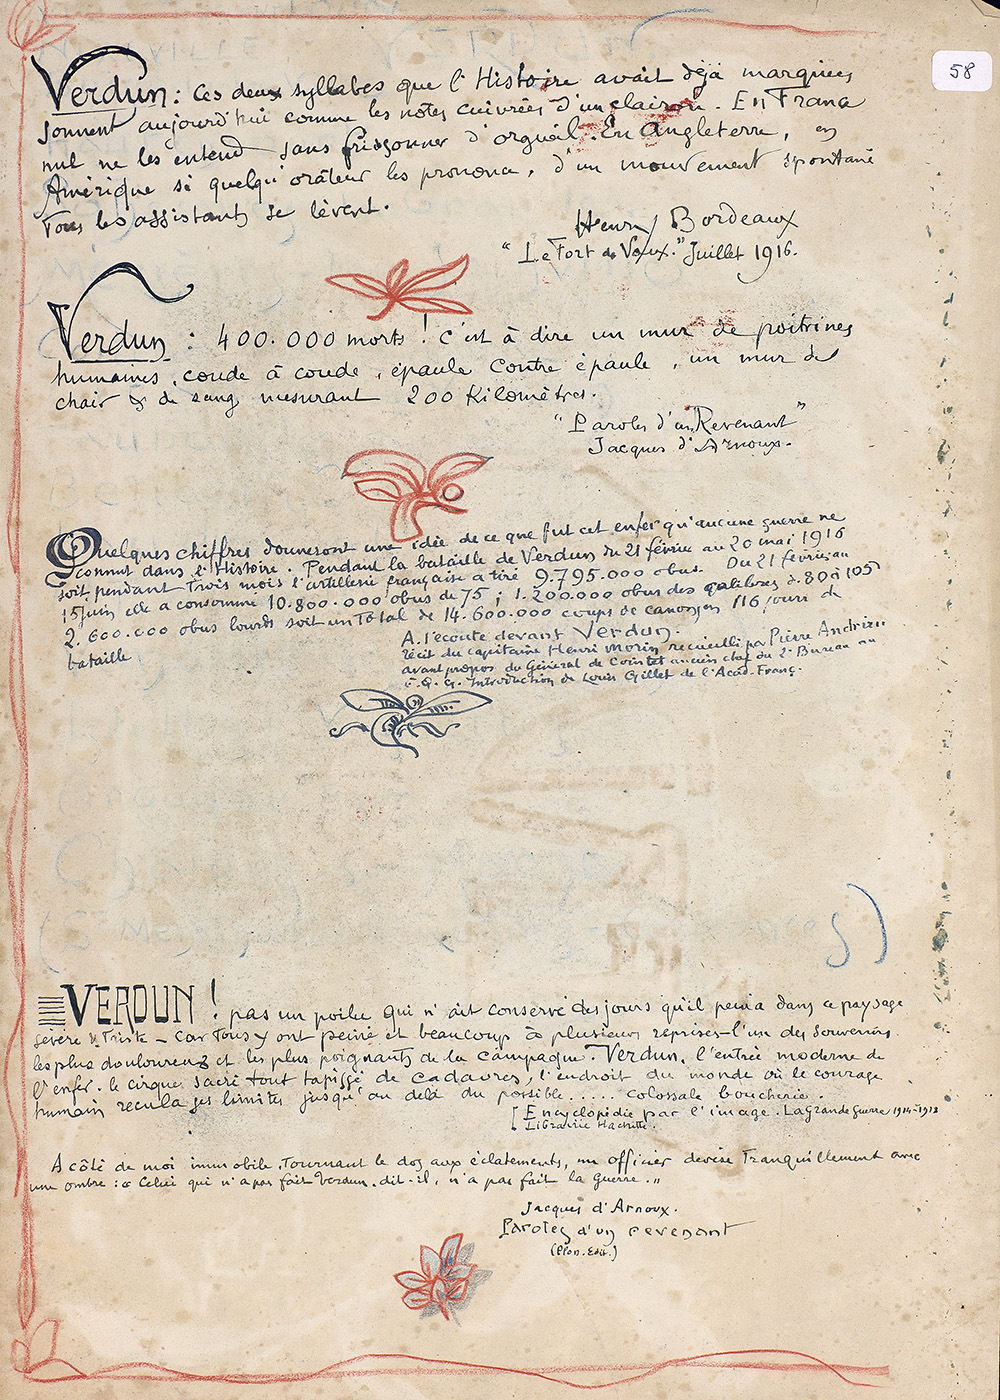 58
Verdun : Ces deux syllabes que l'Histoire avait déjà marquées
sonnent aujourd'hui comme les notes cuivrées d'un clairon. En France
nul ne les entend sans frissonner d'orgueil. En Angleterre, en
Amérique si quelqu'orateur les prononce, d'un mouvement spontané
Tous les assistants se lèvent.
Henry Bordeaux
"Le Fort de Vaux." Juillet 1916.
Verdun : 400.000 morts ! c'est à dire un mur de poitrines
humaines, coude à coude, épaule contre épaule, un mur de
chair & de sang mesurant 200 Kilomètres.
"Paroles d'un Revenant"
Jacques d'Arnoux.
Quelques chiffres donneront une idée de ce que fut cet enfer qu'aucune guerre ne
connut dans l'Histoire. Pendant la bataille de Verdun du 21 février au 20 mai 1916
soit pendant Trois mois l'artillerie française a tiré 9.795.000 obus. Du 21 février au
15 juin elle a consommé 10.800.000 obus de 75 ; 1.200.000 obus des calibres d. 80 à 105
2.600.000 obus lourds soit un Total de 14.600.000 coups de canons en 116 jours de
bataille
A l'écoute devant Verdun.
récit du capitaine Henri Morin recueilli par Pierre Andrieu
avant propos du Général de Cointet ancien chef du 2e Bureau au
G. Q. G. Introduction de Louis Gillet de l'Acad. Franç.
VERDUN ! pas un poilu qui n'ait conservé des jours qu'il peina dans ce paysage
sévère & Triste - car Tous y ont peiné et beaucoup à plusieurs reprises - l'un des souvenirs
les plus douloureux et les plus poignants de la campagne. Verdun, l'entrée moderne de
l'enfer. le cirque sacré tout tapissé de cadavres, l'endroit du monde où le courage
humain recula ses limites jusqu'au delà du possible ..... colossale boucherie.
[ Encyclopédie par l'image. La Grande Guerre 1914-1918
[ Librairie Hachette.
A côté de moi immobile, Tournant le dos aux éclatements, un officier devise Tranquillement avec
une ombre : « Celui qui n'a pas fait Verdun, dit-il, n'a pas fait la guerre. »
Jacques d'Arnoux.
Paroles d'un revenant
(Plon. Edit.)